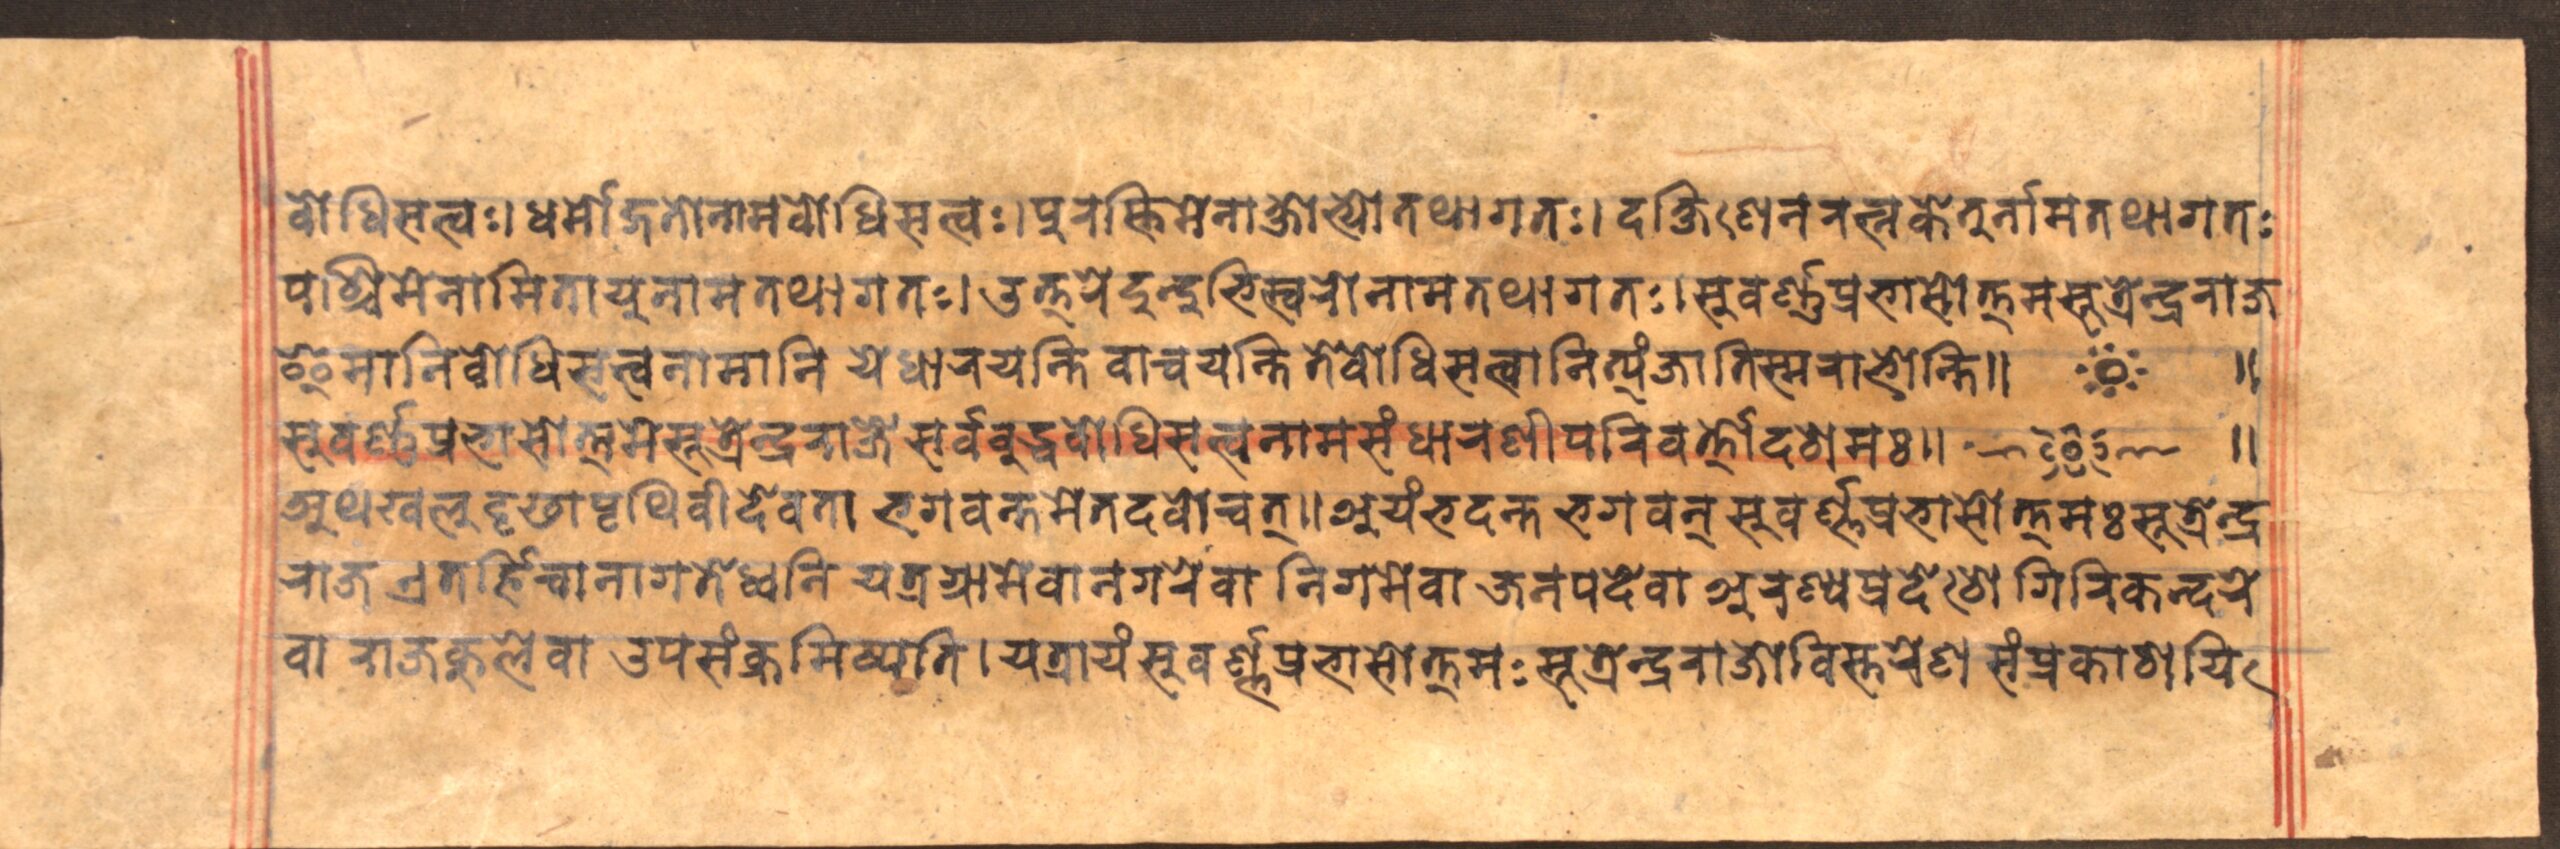 वोधिसत्वः। धर्मोद्गतोनामवोधिसत्वः। पुरस्तिमेनाक्षोभ्योतथागतः। दक्षिणेनरत्नकेतुर्नामतथागतः
पश्चिमेनामितायुनामतथागतः। उत्तरेदुन्दुभिस्वरोनामतथागतः। सुवर्ण्णप्रभासोत्तमसूत्रेन्द्रराज
इमानिवोधिसत्वनामानि येधारयन्ति वाचयन्ति तेवोधिसत्वानित्यंजातिस्मराभोन्ति॥ ॥
सुवर्ण्णप्रभासोत्तमेसूत्रेन्द्रराजे सर्ववुद्धवोधिसत्वनामसंधारणीपरिवर्त्तोदशमः॥ ॥
अथखलुदृढापृथिवीदेवता भगवन्तमेतदवोचत्॥ अयंभदन्त भगवन् सुवर्ण्णप्रभासोत्तमः सूत्रेन्द्र
राज एतर्हिचानागतेध्वनि यत्रग्रामेवानगरेवा निगमेवा जनपदेवा अरण्यप्रदेशे गिरिकन्दरे
वा राजकुलेवा उपसंक्रमिष्यति। यत्रायंसुवर्ण्णप्रभासोत्तमः सूत्रेन्द्रराजोविस्तरेण संप्रकाशयि